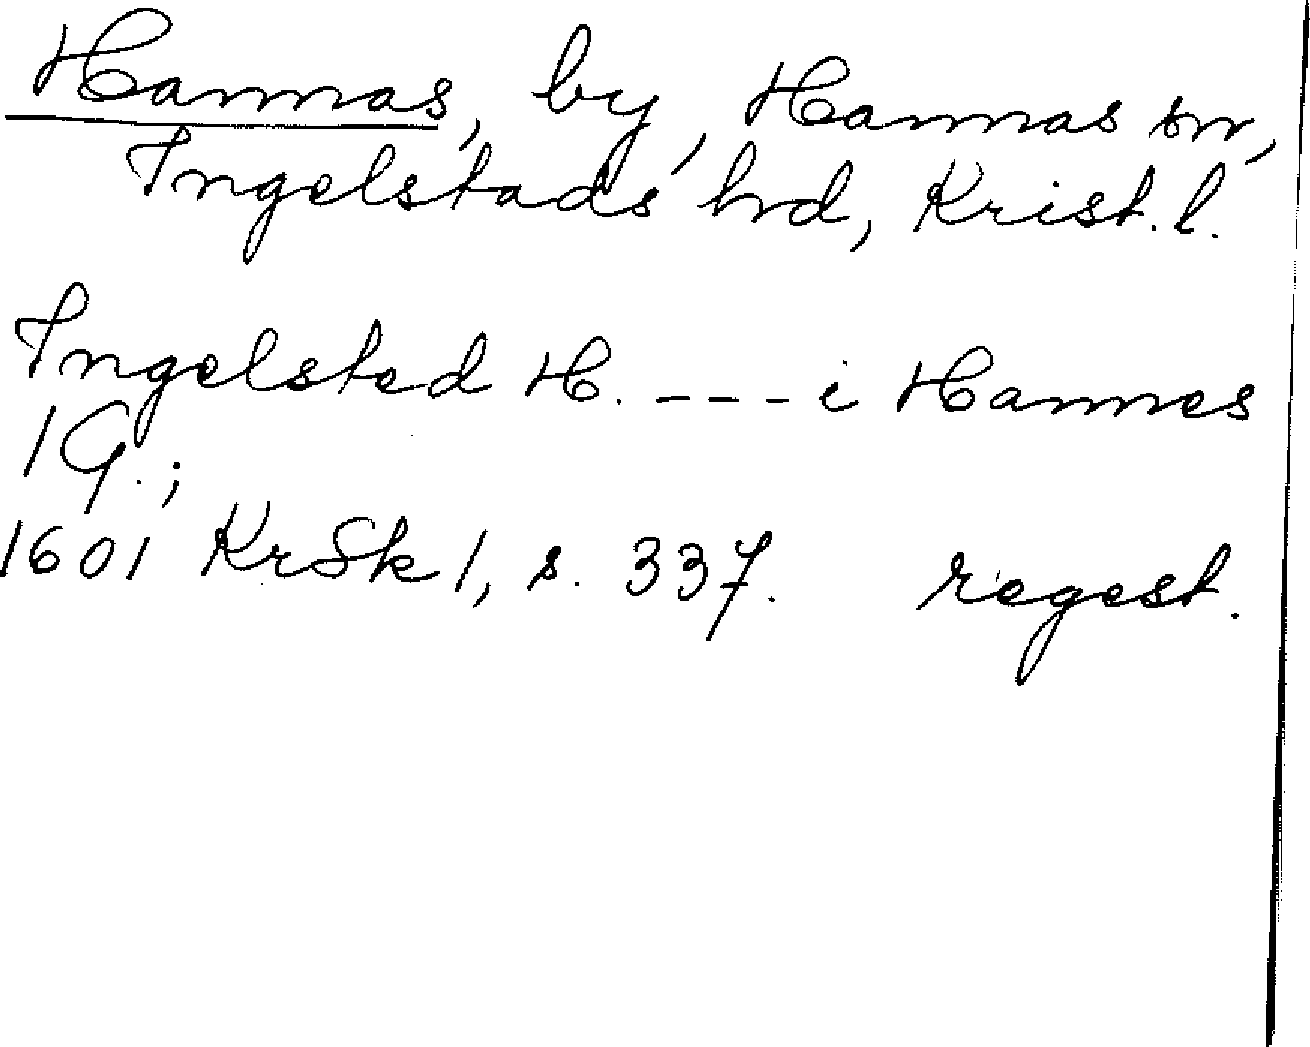 Hannas, by, Hannas sn,
Ingelstads hrd, Krist. l.
Ingelsted H. ---- i Hannes
1 G.;
1601 KrSk 1, s. 337. regest.